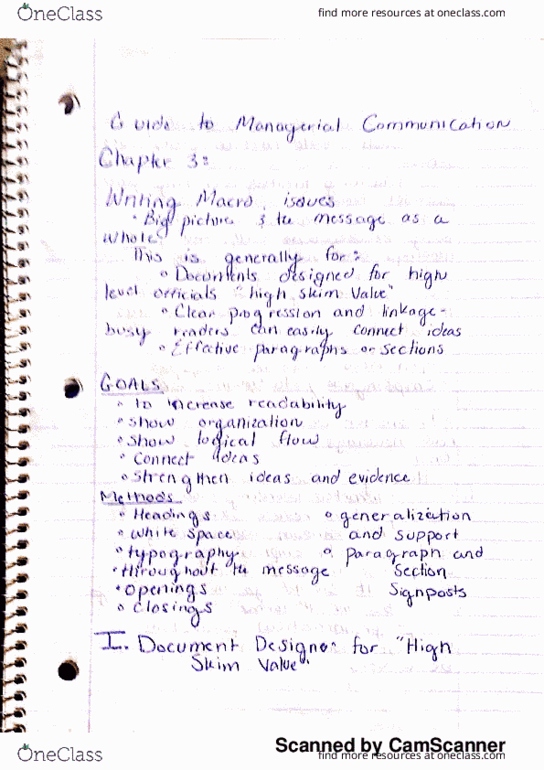 OneClass
find more resources at oneclass.com
Guide to Managerial Communication
Chapter 3:
Writing Macro issues
• Big picture & the message as a
whole
This is generally for:
• Documents designed for high
level officials "high skim value"
• Clear progression and linkage-
busy readers can easily connect ideas
• Effective paragraphs or sections
GOALS
• To increase readability
• Show organization
• Show logical flow
• Connect ideas
• Strengthen ideas and evidence
Methods
• Headings
• White space
• typography
• throughout the message
• Openings
• Closings
• generalization
and support
• paragraph and
Section
Signposts
I. Document Design for "High
Skim Value"
Scanned by CamScanner
OneClass
find more resources at oneclass.com